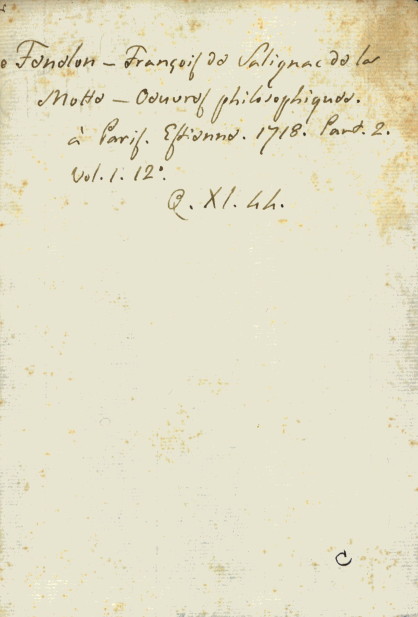 Fenelon – François de Salignac de la
Motte – Oeuvres philosophiques.
à Paris. Estienne. 1718. Part. 2.
Vol. 1. 12°.
Q. XI. 44.
C